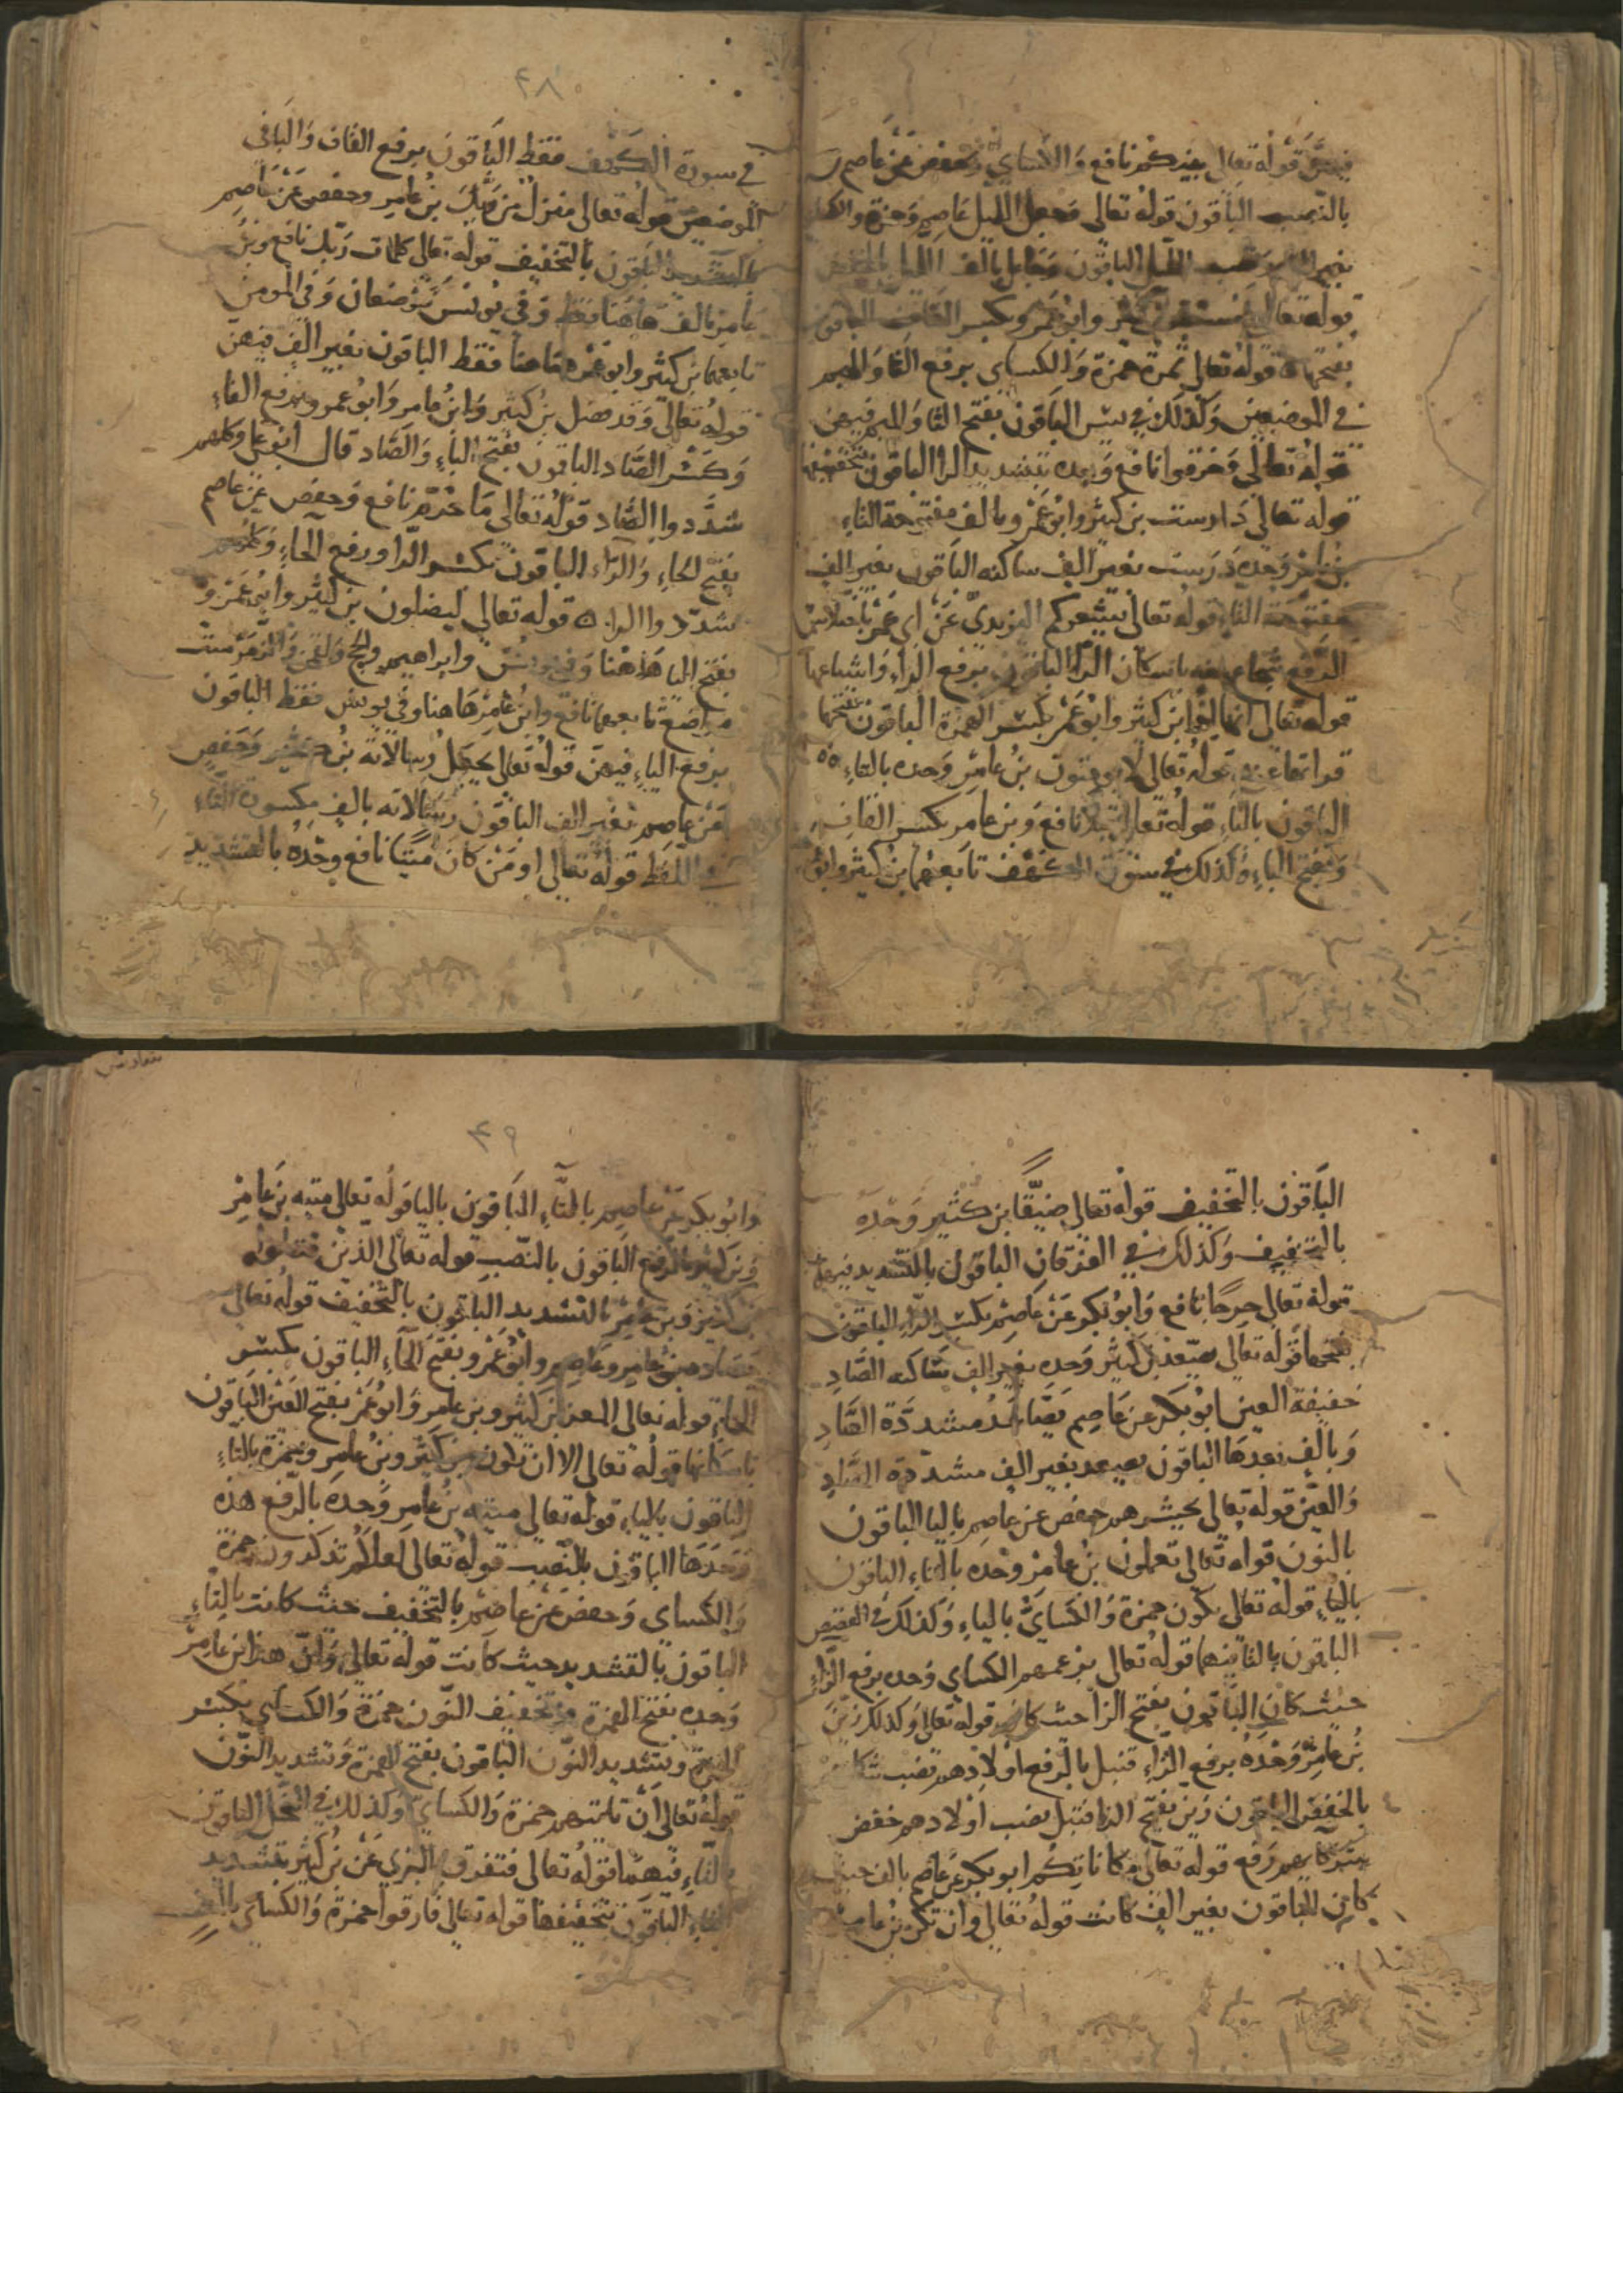 فيهن قوله تعالى بينكم نافع والكساي وحفص عن عاصم
بالنصب الباقون قوله تعالى وجعل الليل عاصم وحمزة والكساي
الليل الباقون وجاعل بالف الليل بالخفض
قوله تعالى فمستقر بن كثير وابو عمرو بكسر القاف الباقون
بفتحها قوله تعالى ثمره حمزة والكساي برفع الثا والميم
في الموضعين وكذلك في يس الباقون بفتح الثا والميم فيهن
قوله تعالى وخرقوا نافع وحده بتشديد الرا الباقون بتخفيفها
قوله تعالى دارست بن كثير وابو عمرو بالف مفتوحة التاء
بن عامر وحده درست بغير الف ساكنه الباقون بغير الف
مفتوحة التاء قوله تعالى يشعركم اليزيدي عن ابي عمرو باختلاس
الرفع شجاع عنه باسكان الرا الباقون برفع الراء واشباعها
قوله تعالى انها اذا بن كثير وابو عمرو بكسر الهمزة الباقون بفتحها
قوله تعالى لا يومنون بن عامر وحده بالتاء
الباقون بالياء قوله تعالى قبلا نافع وبن عامر بكسر القاف
وبفتح الباء وكذلك في سورة الكهف تابعهما بن كثير وابو
٤٨
في سورة الكهف فقط الباقون برفع القاف والباء في
الموضعين قوله تعالى منزل من ربك بن عامر وحفص عن عاصم
بالتشديد الباقون بالتخفيف قوله تعالى كلمات ربك نافع وبن
عامر بالف هاهنا فقط وفي يونس موضعان وفي المومن
تابعهما بن كثير وابو عمرو هاهنا فقط الباقون بغير الف فيهن
قوله تعالى وقد فصل بن كثير وابن عامر وابو عمرو برفع الفاء
وكسر الصاد الباقون بفتح الفاء والصاد قال ابو علي وكلهم
شددوا الصاد قوله تعالى ما حرم نافع وحفص عن عاصم
بفتح الحاء والراء الباقون بكسر الرا ورفع الحاء وكلهم
شددوا الرا قوله تعالى ليضلون بن كثير وابو عمرو
بفتح اليا هاهنا وفي يونس وابراهيم والحج ولقمن والزمر ستة
مواضع تابعهما نافع وابن عامر هاهنا وفي يونس فقط الباقون
برفع الياء فيهن قوله تعالى يجعل رسالاته بن كثير وحفص
عن عاصم بغير الف الباقون رسالاته بالف مكسورة التاء
في اللفظ قوله تعالى اومن كان ميتا نافع وحده بالتشديد
الباقون بالتخفيف قوله تعالى ضيقا بن كثير وحده
بالتخفيف وكذلك في الفرقان الباقون بالتشديد فيهما
قوله تعالى حرجا نافع وابو بكر عن عاصم بكسر الراء الباقون
بفتحها قوله تعالى يصعد بن كثير وحده بغير الف ساكنه الصاد
خفيفة العين ابو بكر عن عاصم يصاعد مشددة الصاد
وبالف بعدها الباقون يصعد بغير الف مشددة الصاد
والعين قوله تعالى يحشرهم حفص عن عاصم باليا الباقون
بالنون قوله تعالى تعملون بن عامر وحده بالتاء الباقون
بالياء قوله تعالى يكون حمزة والكساي بالياء وكذلك في القصص
الباقون بالتا فيهما قوله تعالى بزعمهم الكساي وحده برفع الزاء
حيث كان الباقون بفتح الزا حيث كان قوله تعالى وكذلك زين
بن عامر وحده برفع الزاء قتل بالرفع اولادهم نصب شركايهم
بالخفض الباقون زين بفتح الزا قتل نصب اولادهم خفض
شركاوهم رفع قوله تعالى مكاناتكم ابو بكر عن عاصم بالف حيث
كان الباقون بغير الف كانت قوله تعالى وان تكن بن عامر
٤٩
وابو بكر عن عاصم بالتاء الباقون باليا قوله تعالى ميته بن عامر
وبن كثير بالرفع الباقون بالنصب قوله تعالى الذين قتلوا
بن كثير وبن عامر بالتشديد الباقون بالتخفيف قوله تعالى
حصاده بن عامر وعاصم وابو عمرو بفتح الحاء الباقون بكسر
الحاء قوله تعالى المعز بن كثير وبن عامر وابو عمرو بفتح العين الباقون
باسكانها قوله تعالى الا ان تكون بن كثير وبن عامر وحمزة بالتاء
الباقون بالياء قوله تعالى ميته بن عامر وحده بالرفع هذه
وحدها الباقون بالنصب قوله تعالى لعلكم تذكرون حمزة
والكساي وحفص عن عاصم بالتخفيف حيث كانت بالتاء
الباقون بالتشديد حيث كانت قوله تعالى وان هذا بن عامر
وحده بفتح الهمزة وتخفيف النون حمزة والكساي بكسر
الهمزة وبتشديد النون الباقون بفتح الهمزة وتشديد النون
قوله تعالى ان تاتيهم حمزة والكساي وكذلك في النحل الباقون
بالتاء فيهما قوله تعالى فتفرق البزي عن بن كثير بتشديد
التاء الباقون بتخفيفها قوله تعالى فارقوا حمزة والكساي بالف